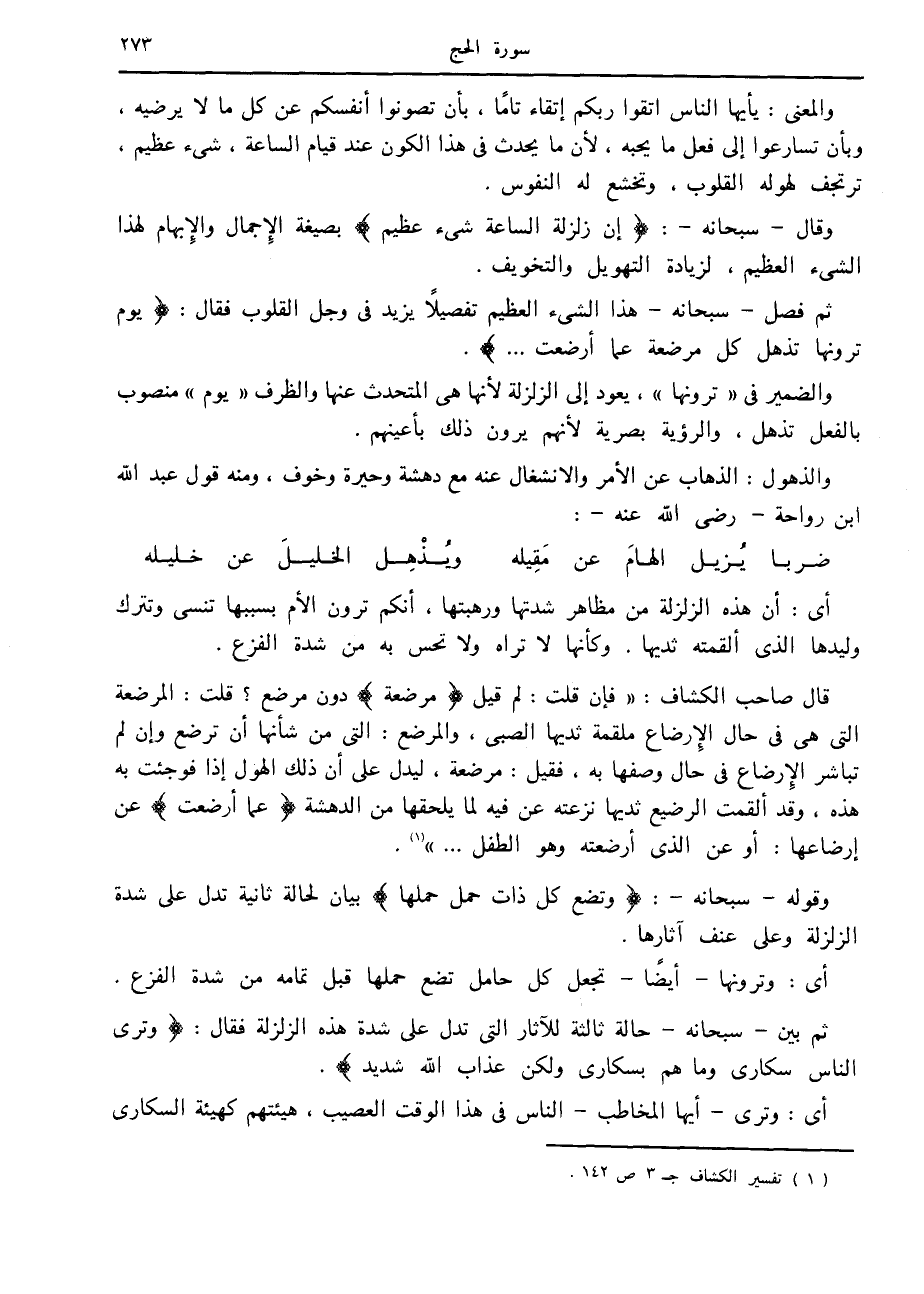 سورة الحج
٢٧٣
والمعنى : يأيها الناس اتقوا ربكم إتقاء تامًا ، بأن تصونوا أنفسكم عن كل ما لا يرضيه ،
وبأن تسارعوا إلى فعل ما يحبه ، لأن ما يحدث فى هذا الكون عند قيام الساعة ، شىء عظيم ،
ترتجف لهوله القلوب ، وتخشع له النفوس .
وقال – سبحانه – : ﴿ إن زلزلة الساعة شىء عظيم ﴾ بصيغة الإجمال والإبهام لهذا
الشىء العظيم ، لزيادة التهويل والتخويف .
ثم فصل – سبحانه – هذا الشىء العظيم تفصيلًا يزيد فى وجل القلوب فقال : ﴿ يوم
ترونها تذهل كل مرضعة عما أرضعت ... ﴾ .
والضمير فى « ترونها » ، يعود إلى الزلزلة لأنها هى المتحدث عنها والظرف « يوم » منصوب
بالفعل تذهل ، والرؤية بصرية لأنهم يرون ذلك بأعينهم .
والذهول : الذهاب عن الأمر والانشغال عنه مع دهشة وحيرة وخوف ، ومنه قول عبد الله
ابن رواحة – رضى الله عنه – :
ضربا يُزيل الهامَ عن مَقِيله ويُذْهِل الخليلَ عن خليله
أى : أن هذه الزلزلة من مظاهر شدتها ورهبتها ، أنكم ترون الأم بسببها تنسى وتترك
وليدها الذى ألقمته ثديها . وكأنها لا تراه ولا تحس به من شدة الفزع .
قال صاحب الكشاف : « فإن قلت : لم قيل ﴿ مرضعة ﴾ دون مرضع ؟ قلت : المرضعة
التى هى فى حال الإرضاع ملقمة ثديها الصبى ، والمرضع : التى من شأنها أن ترضع وإن لم
تباشر الإرضاع فى حال وصفها به ، فقيل : مرضعة ، ليدل على أن ذلك الهول إذا فوجئت به
هذه ، وقد ألقمت الرضيع ثديها نزعته عن فيه لما يلحقها من الدهشة ﴿ عما أرضعت ﴾ عن
إرضاعها : أو عن الذى أرضعته وهو الطفل ... »(١) .
وقوله – سبحانه – : ﴿ وتضع كل ذات حمل حملها ﴾ بيان لحالة ثانية تدل على شدة
الزلزلة وعلى عنف آثارها .
أى : وترونها – أيضًا – تجعل كل حامل تضع حملها قبل تمامه من شدة الفزع .
ثم بين – سبحانه – حالة ثالثة للآثار التى تدل على شدة هذه الزلزلة فقال : ﴿ وترى
الناس سكارى وما هم بسكارى ولكن عذاب الله شديد ﴾ .
أى : وترى – أيها المخاطب – الناس فى هذا الوقت العصيب ، هيئتهم كهيئة السكارى
( ١ ) تفسير الكشاف جـ ٣ ص ١٤٢ .